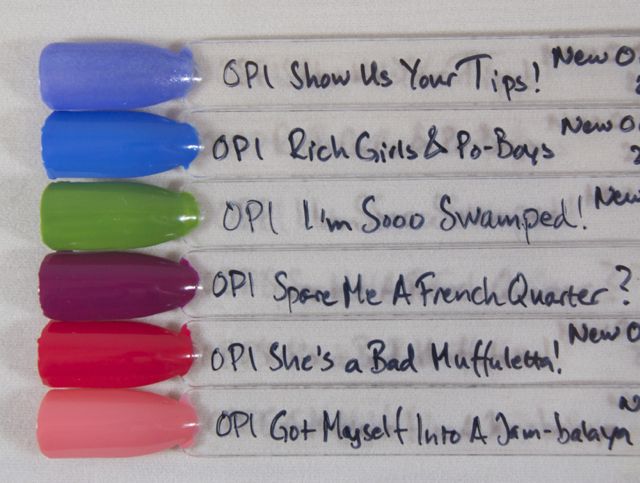 OPI Show Us Your Tips! New O
OPI Rich Girls & Po-Boys New O
OPI I'm Sooo Swamped! New
OPI Spare Me A French Quarter?
OPI She's a Bad Muffuletta! New O
OPI Got Myself Into A Jam-balaya N